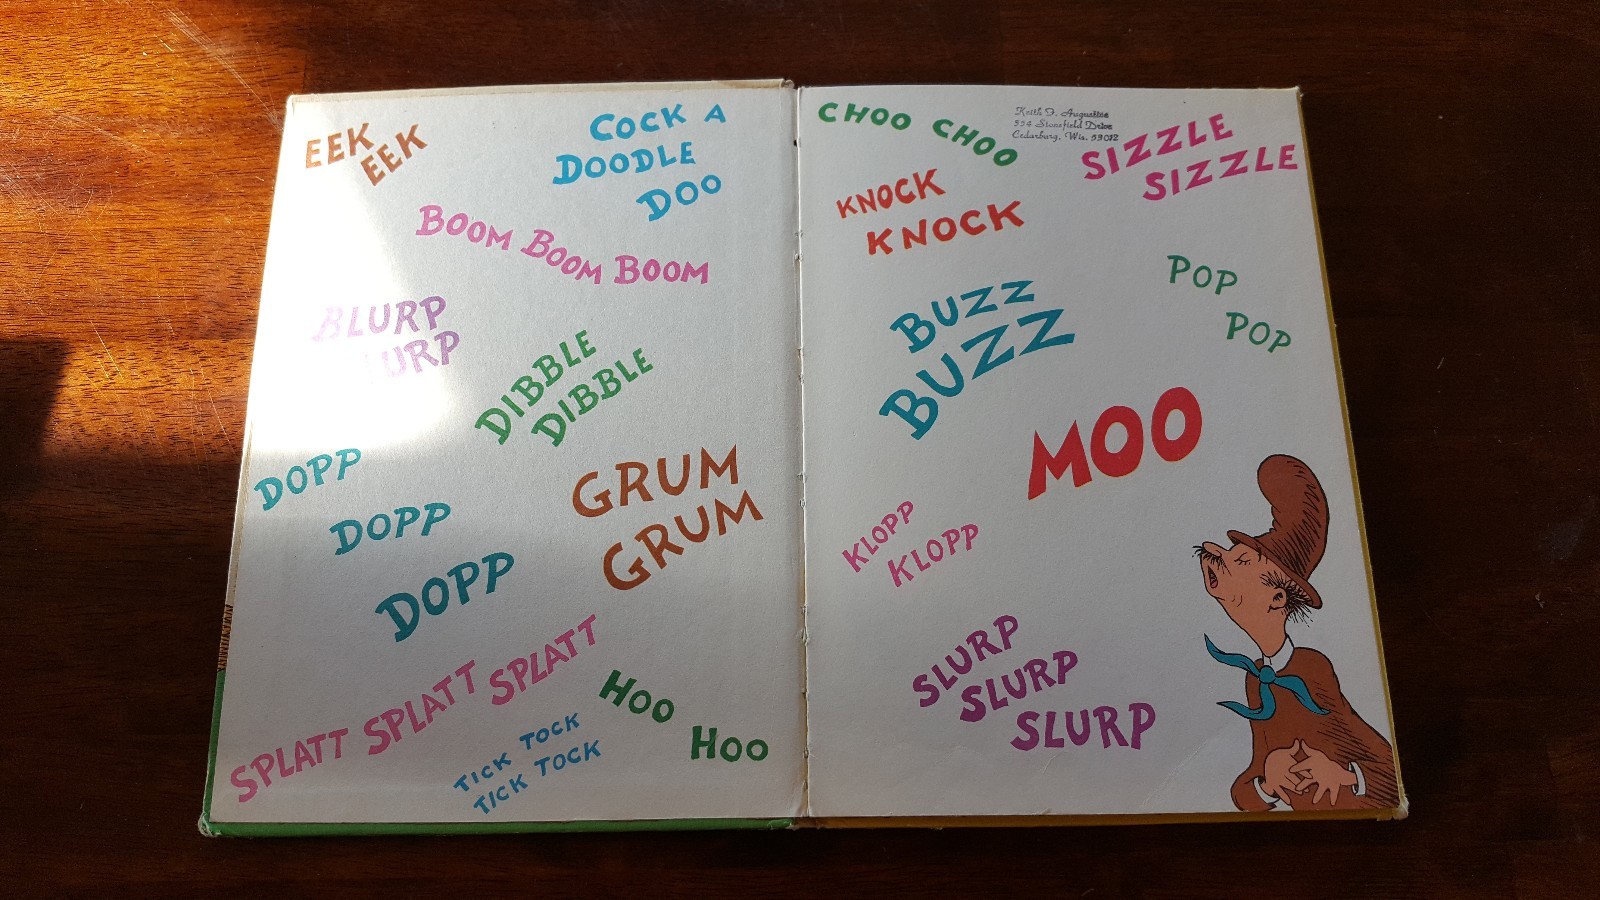 EEK
EEK
COCK A
DOODLE
DOO
BOOM BOOM BOOM
BLURP
BLURP
DIBBLE
DIBBLE
DOPP
DOPP
DOPP
GRUM
GRUM
SPLATT SPLATT SPLATT
HOO
HOO
TICK TOCK
TICK TOCK
CHOO CHOO
Keith F. Augustine
534 Stonefield Drive
Cedarburg, Wis. 53012
SIZZLE
SIZZLE
KNOCK
KNOCK
POP
POP
BUZZ
BUZZ
MOO
KLOPP
KLOPP
SLURP
SLURP
SLURP